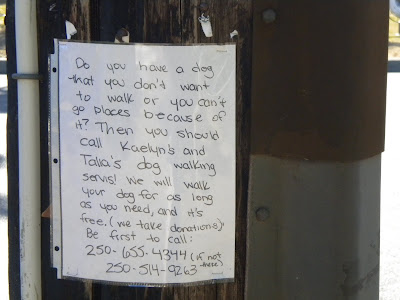 Do you have a dog
that you don't want
to walk or you can't
go places because of
it? Then you should
call Kaelyn's and
Talia's dog walking
servis! We will walk
your dog for as long
as you need, and it's
free. (we take donations)
Be first to call:
250-655-4344 (if not
there)
250-514-9263